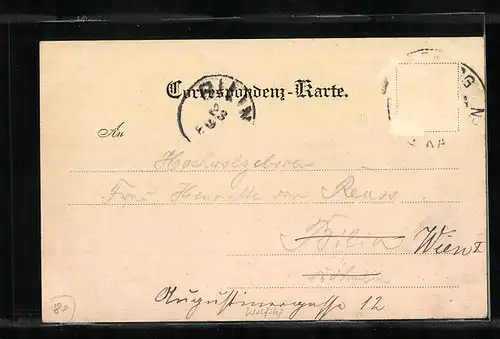 Correspondenz-Karte.
BILIN
23
An
Hochwolgeboren
Frau Henriette von Reuss
Bilin Wien I
Böhmen
Augustinergasse 12
80